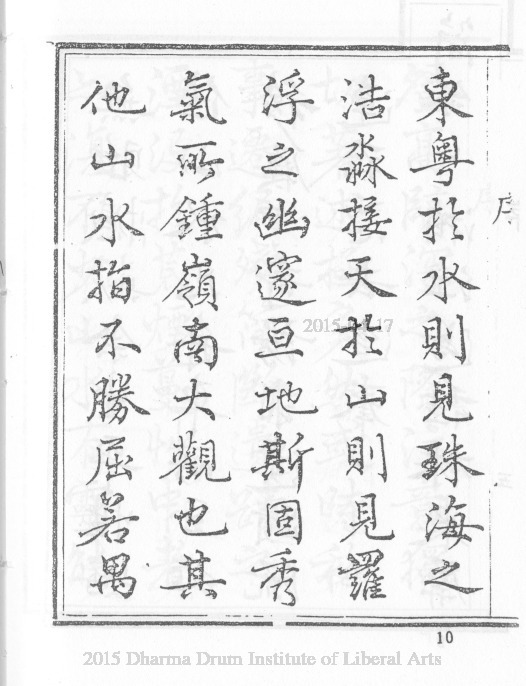 序
東粵於水則見珠海之
浩淼接天於山則見羅
浮之幽邃亘地斯固秀
氣所鍾嶺南大觀也其
他山水指不勝屈若禺
2015.
17
10
2015 Dharma Drum Institute of Liberal Arts